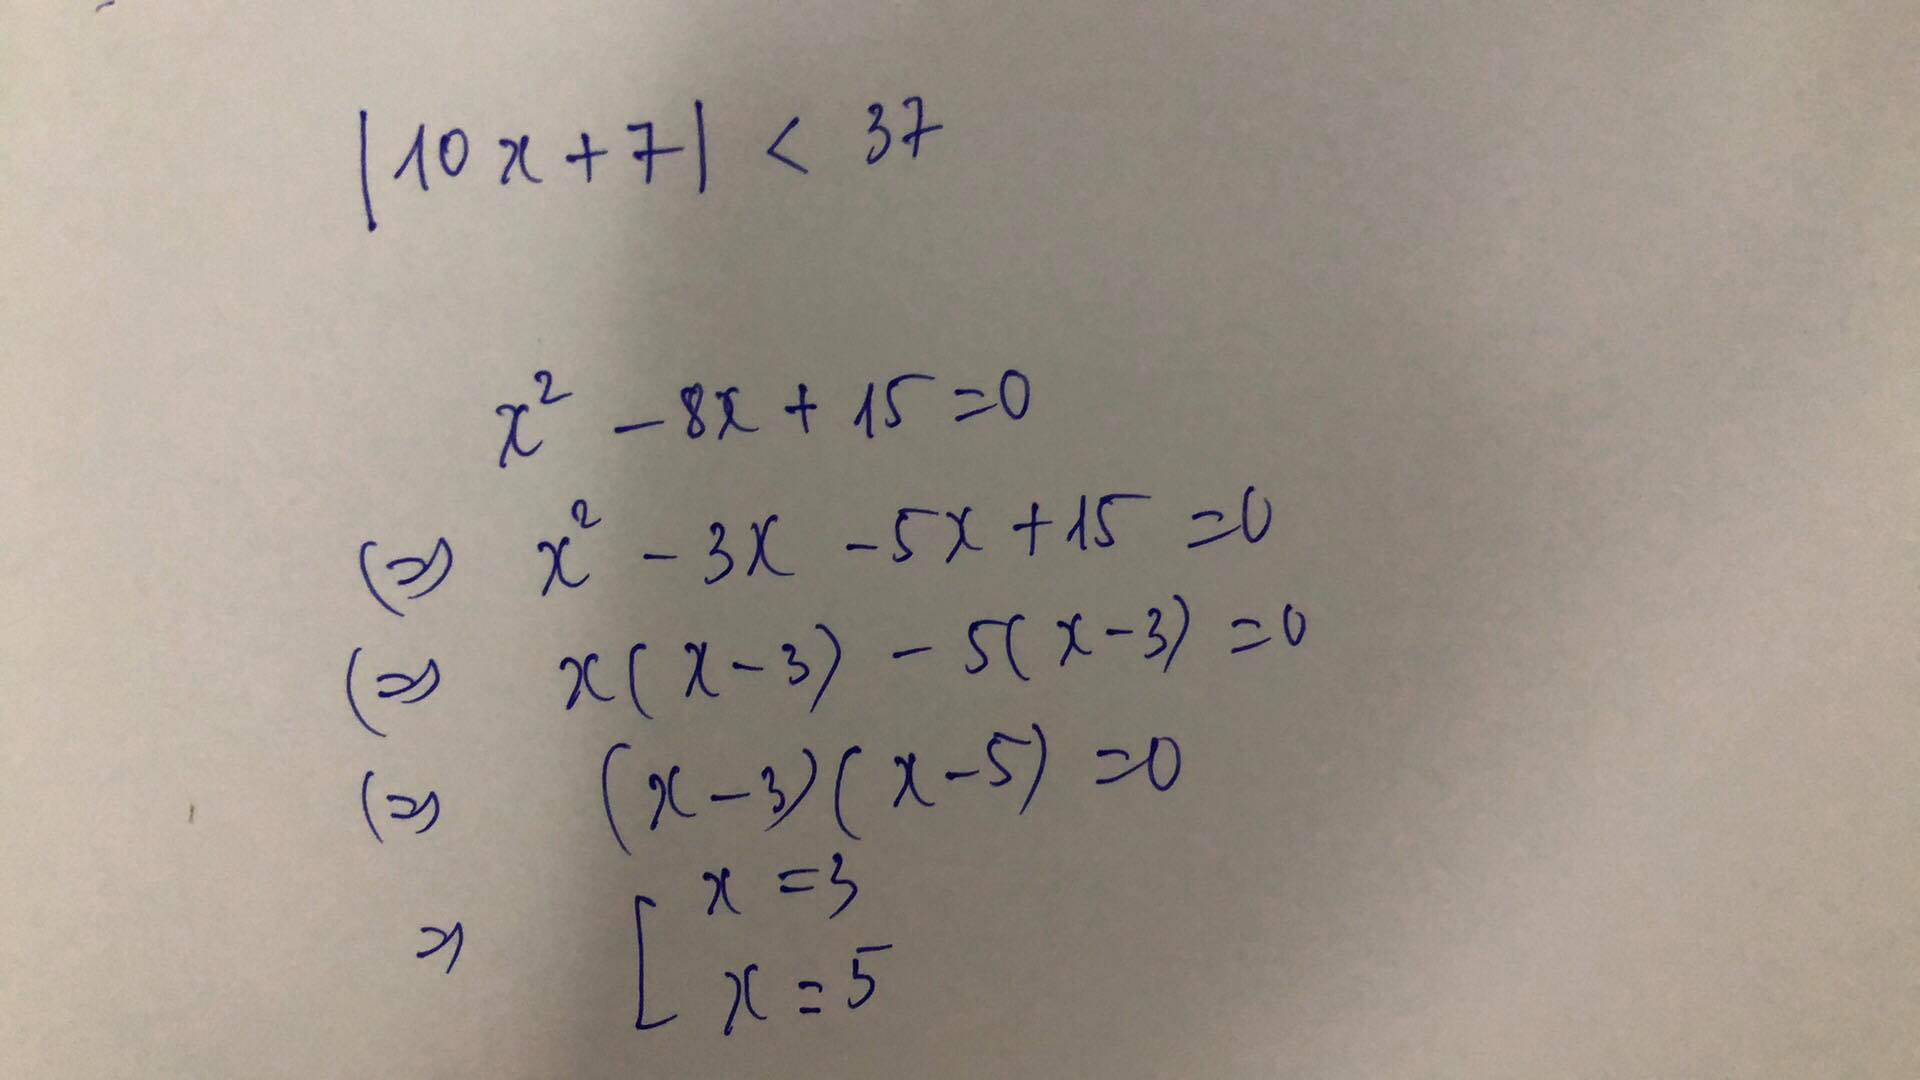 |10x+7| < 37
x² - 8x + 15 =0
(=>) x² - 3x - 5x + 15 =0
(=>) x(x-3) - 5(x-3) =0
(=>) (x-3)(x-5) =0
=> [ x = 3
x = 5